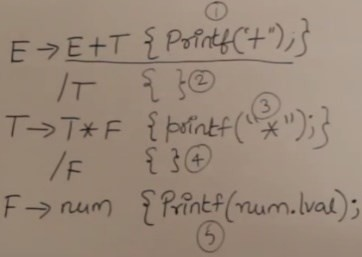 ①
E → E+T { Printf("+");}
/T { } ②
③
T → T*F { printf("*");}
/F { } ④
F → num { Printf(num.lval);
⑤